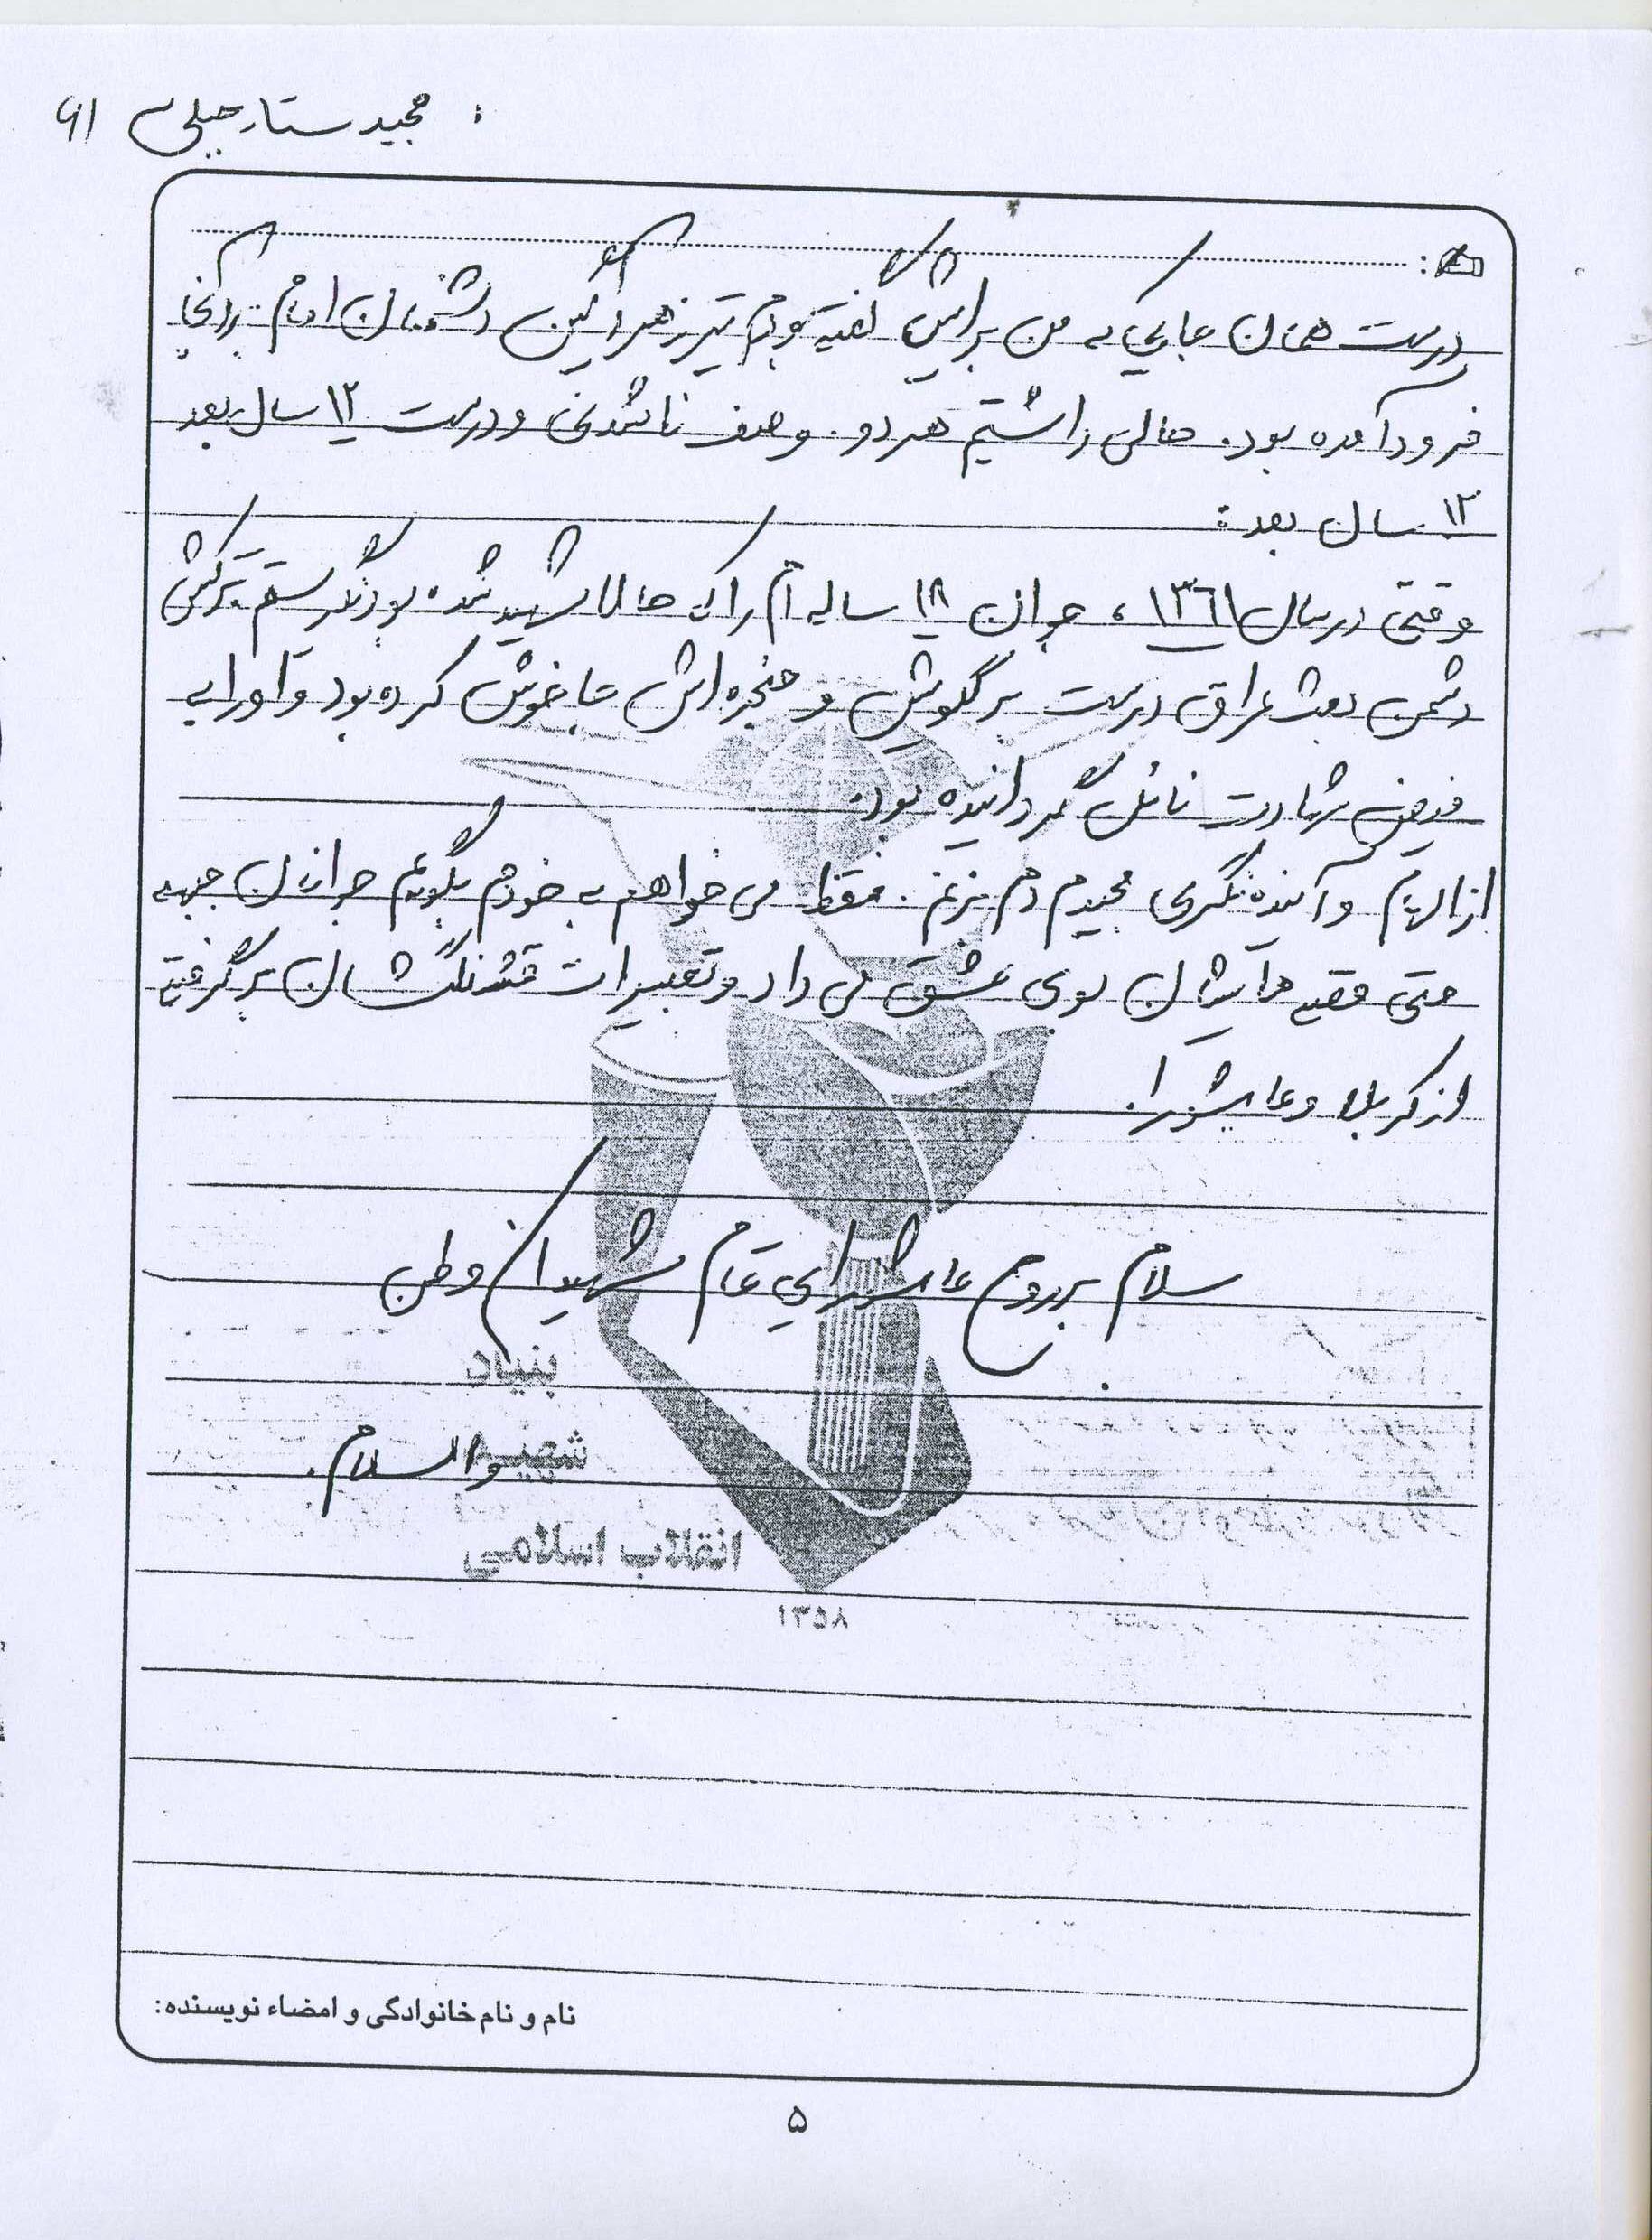 مجید ستار جبلی ۶۱
درست همان جایی که من برایش گفته بودم تیر زهرآگین دشمنان امام بر آنجا
فرود آمده بود. حالی داشتیم هر دو. وصف ناشدنی و درست ۱۲ سال بعد
۱۲ سال بعد:
وقتی در سال ۱۳۶۱، جوان ۱۸ ساله ام را که حالا شهید شده بود نگریستم ترکش
دشمن بعث عراق درست بر گلویش و حنجره اش جا خوش کرده بود و او را به
فیض شهادت نائل گردانیده بود.
از الهام و آینده نگری مجیدم دم نزنم. فقط می خواهم به خودم بگویم جوانان جبهه
حتی قصه هایشان بوی عشق می داد و تعبیرات قشنگشان برگرفته
از کربلا و عاشورا.
سلام بر روح عاشورایی تمام شهیدان وطن
بنیاد
شهید
والسلام.
انقلاب اسلامی
۱۳۵۸
نام و نام خانوادگی و امضاء نویسنده:
۵